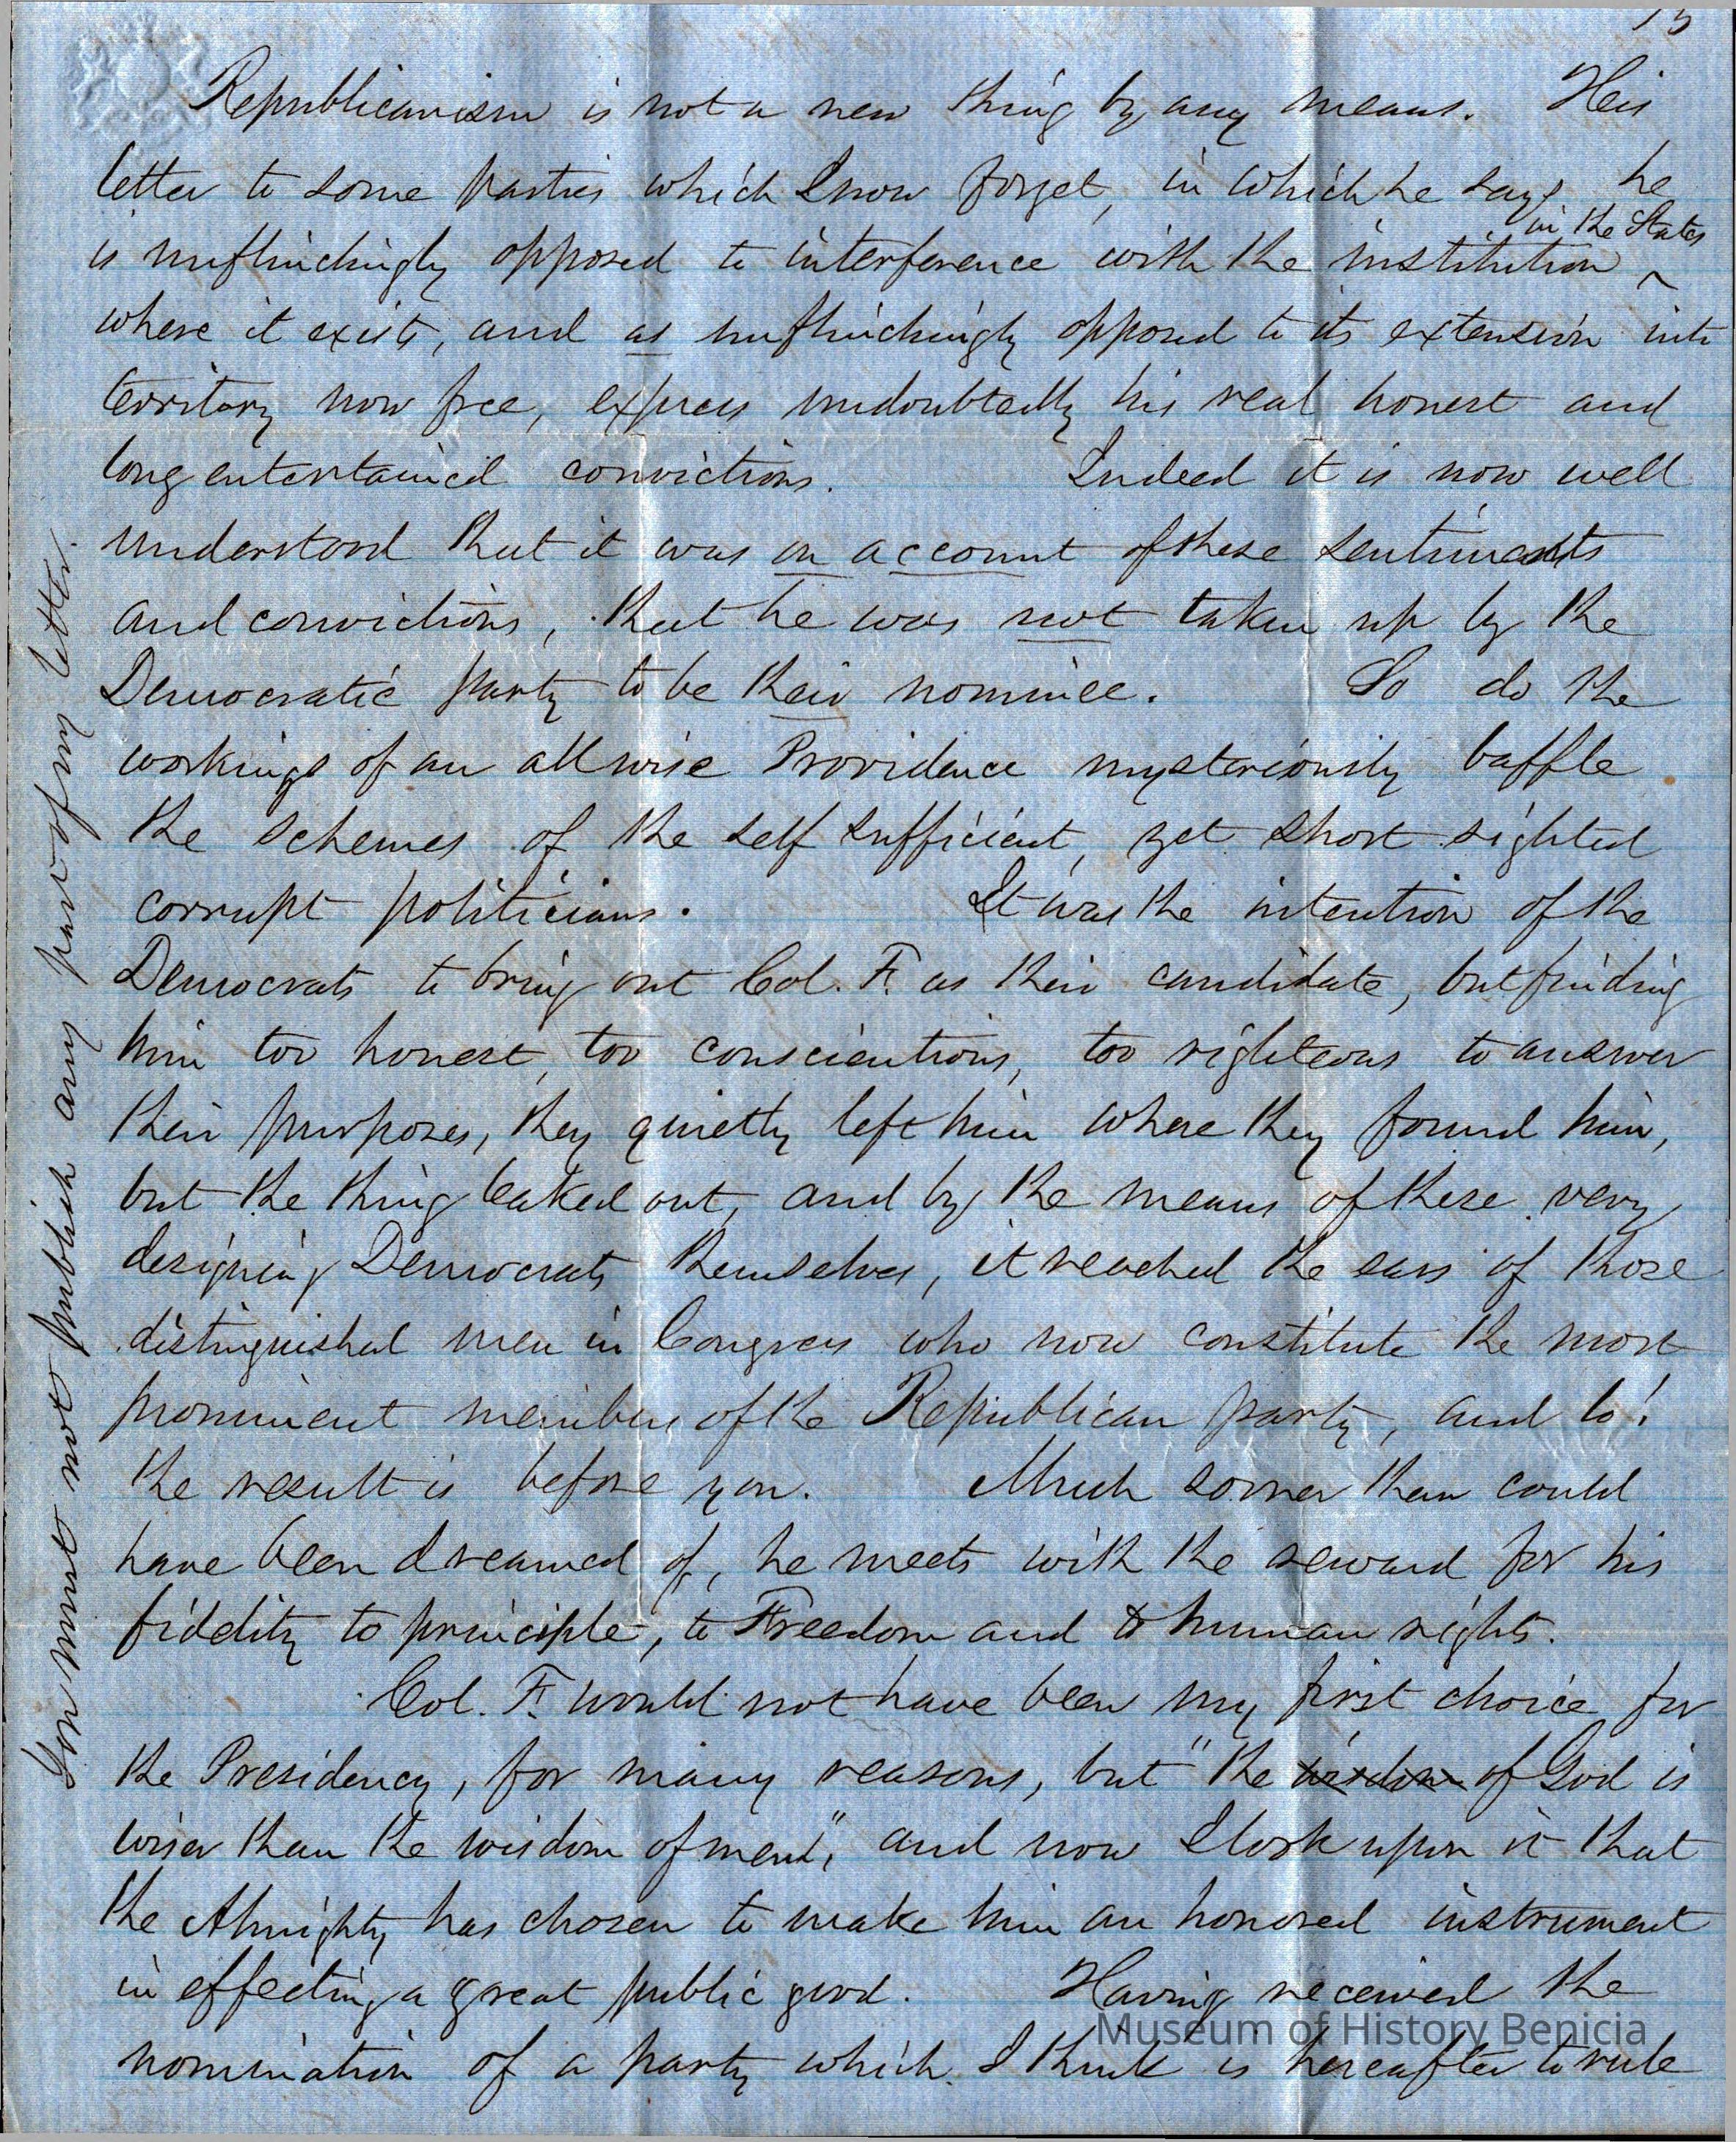 13
Republicanism is not a new thing by any means. His
letter to some parties which I now forget, in which he says he
in the States
is unflinchingly opposed to interference with the institution ‸
where it exists, and as unflinchingly opposed to its extension into
territory now free, express undoubtedly his real honest and
long entertained convictions. Indeed it is now well
understood that it was on account of these sentiments
and convictions, that he was not taken up by the
Democratic party to be their nominee. So do the
workings of an all wise Providence mysteriously baffle
the schemes of the self sufficient, yet short sighted
corrupt politicians. It was the intention of the
Democrats to bring out Col. F. as their candidate, but finding
him too honest, too conscientious, too righteous to answer
their purposes, they quietly left him where they found him,
but the thing leaked out, and by the means of these very
designing Democrats themselves, it reached the ears of those
distinguished men in Congress who now constitute the most
prominent members of the Republican party, and lo!
the result is before you. Much sooner than could
have been dreamed of, he meets with the reward for his
fidelity to principle, to Freedom and to human rights.
Col. F. would not have been my first choice for
the Presidency, for many reasons, but "the wisdom of God is
wiser than the wisdom of men", and now I look upon it that
the Almighty has chosen to make him an honored instrument
in effecting a great public good. Having received the
nomination of a party which I think is hereafter to rule
You must not publish any part of my letter.
Museum of History Benicia